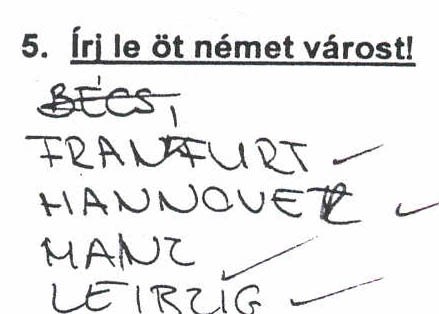 5. Írj le öt német várost!
BÉCS,
FRANKFURT
HANNOVER
MANZ
LEIPZIG